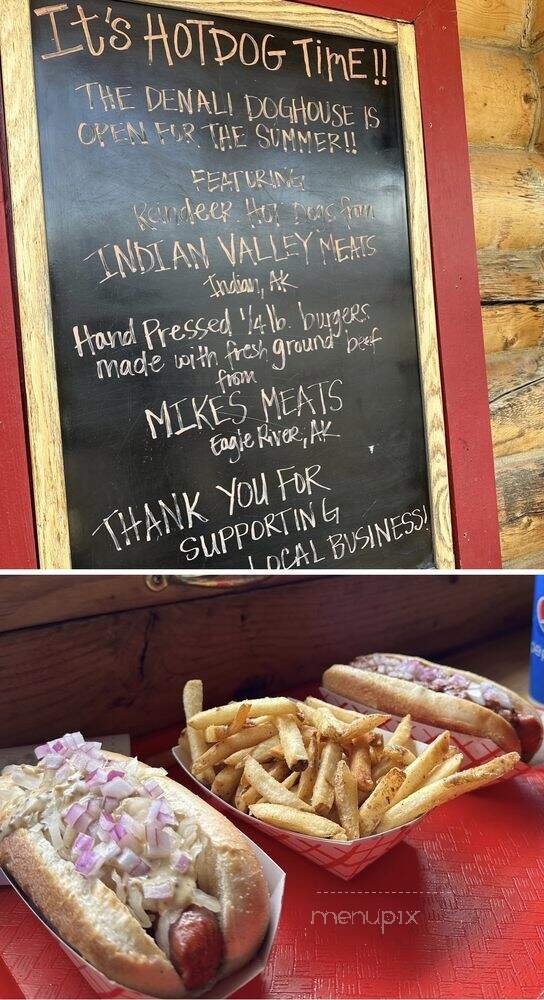 It's HOTDOG TimE!!
THE DENALI DOGHOUSE IS
OPEN FOR THE SUMMER!!
FEATURING
Reindeer Hot Dogs from
INDIAN VALLEY MEATS
Indian, AK
Hand Pressed 1/4 lb. burgers
made with fresh ground beef
from
MIKES MEATS
Eagle River, AK
THANK YOU FOR
SUPPORTING
LOCAL BUSINESS!
menupix